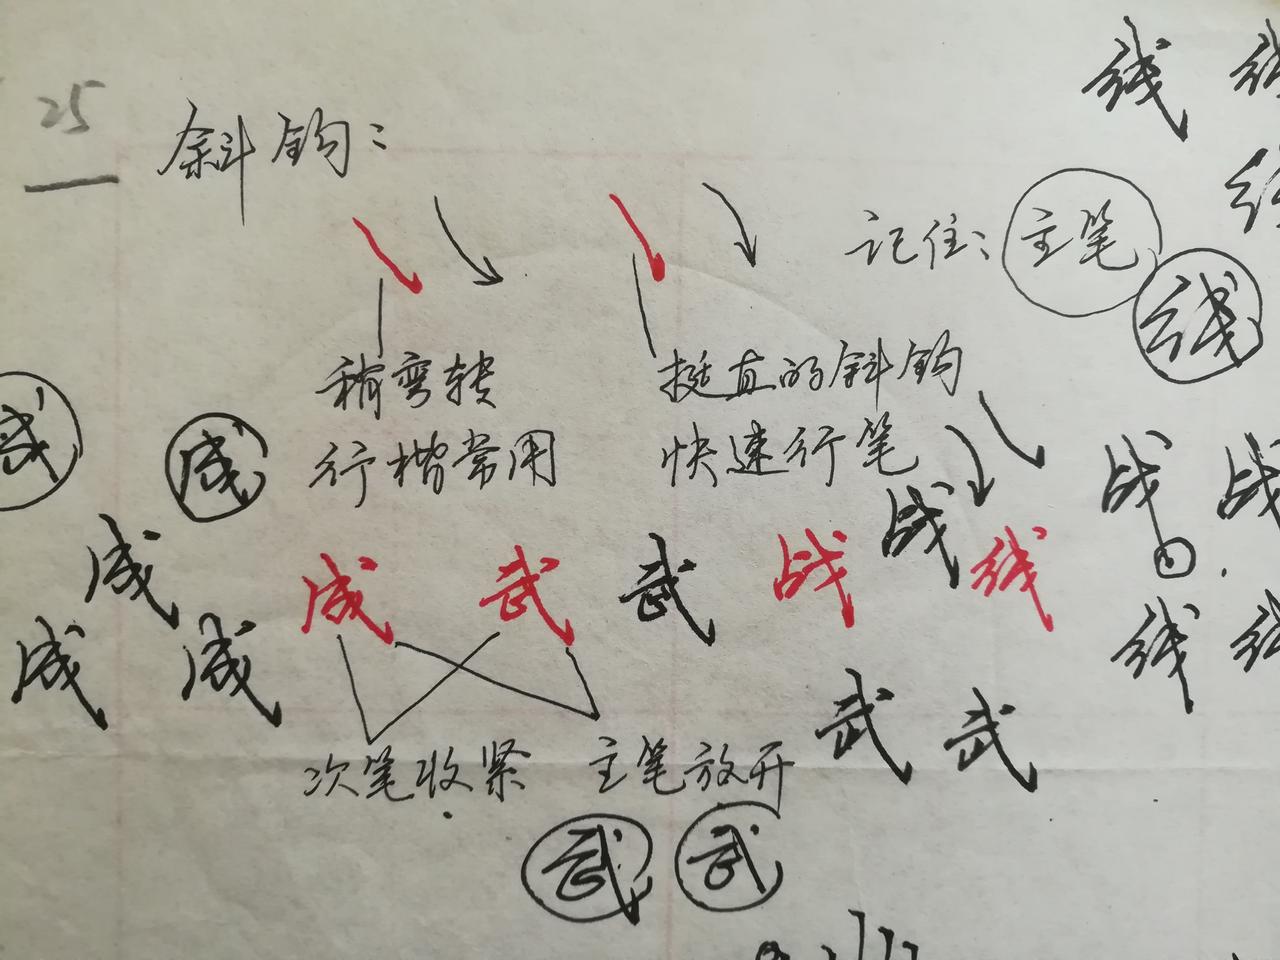 25
斜钩:
线 线
线
记住: 主笔
线
稍弯转
行楷常用
挺直的斜钩
快速行笔
成 成
成 成 武 武 战 战 线 战 战
成 成 武 武 线 线
次笔收紧 主笔放开
武 武